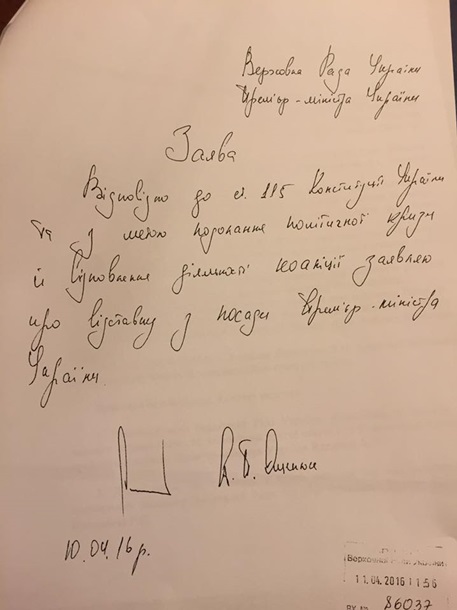 Верховна Рада України
Премʼєр-міністра України
Заява
Відповідно до ст. 115 Конституції України
та з метою подолання політичної кризи
й відновлення діяльності коаліції заявляю
про відставку з посади Премʼєр-міністра
України.
А. П. Яценюк
10.04.16 р.
11.04.2016 11 56
86037